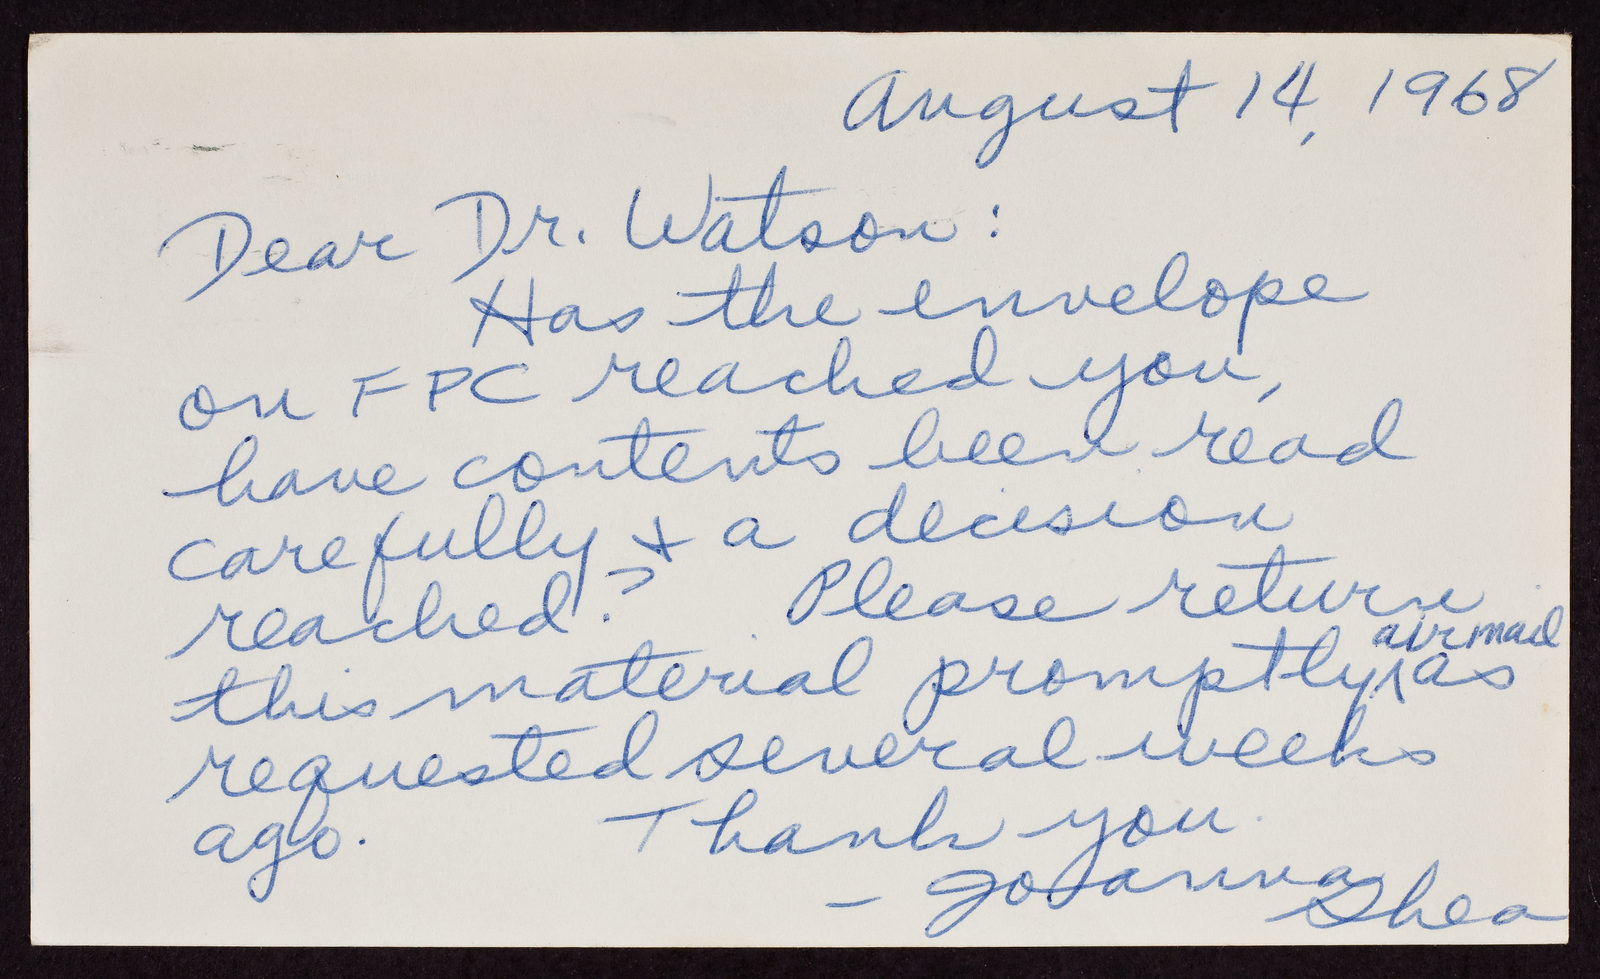 August 14, 1968
Dear Dr. Watson:
Has the envelope
on FPC reached you,
have contents been read
carefully + a decision
reached? Please return
airmail
this material promptly, ^ as
requested several weeks
ago. Thank you.
- Joanna
Shea